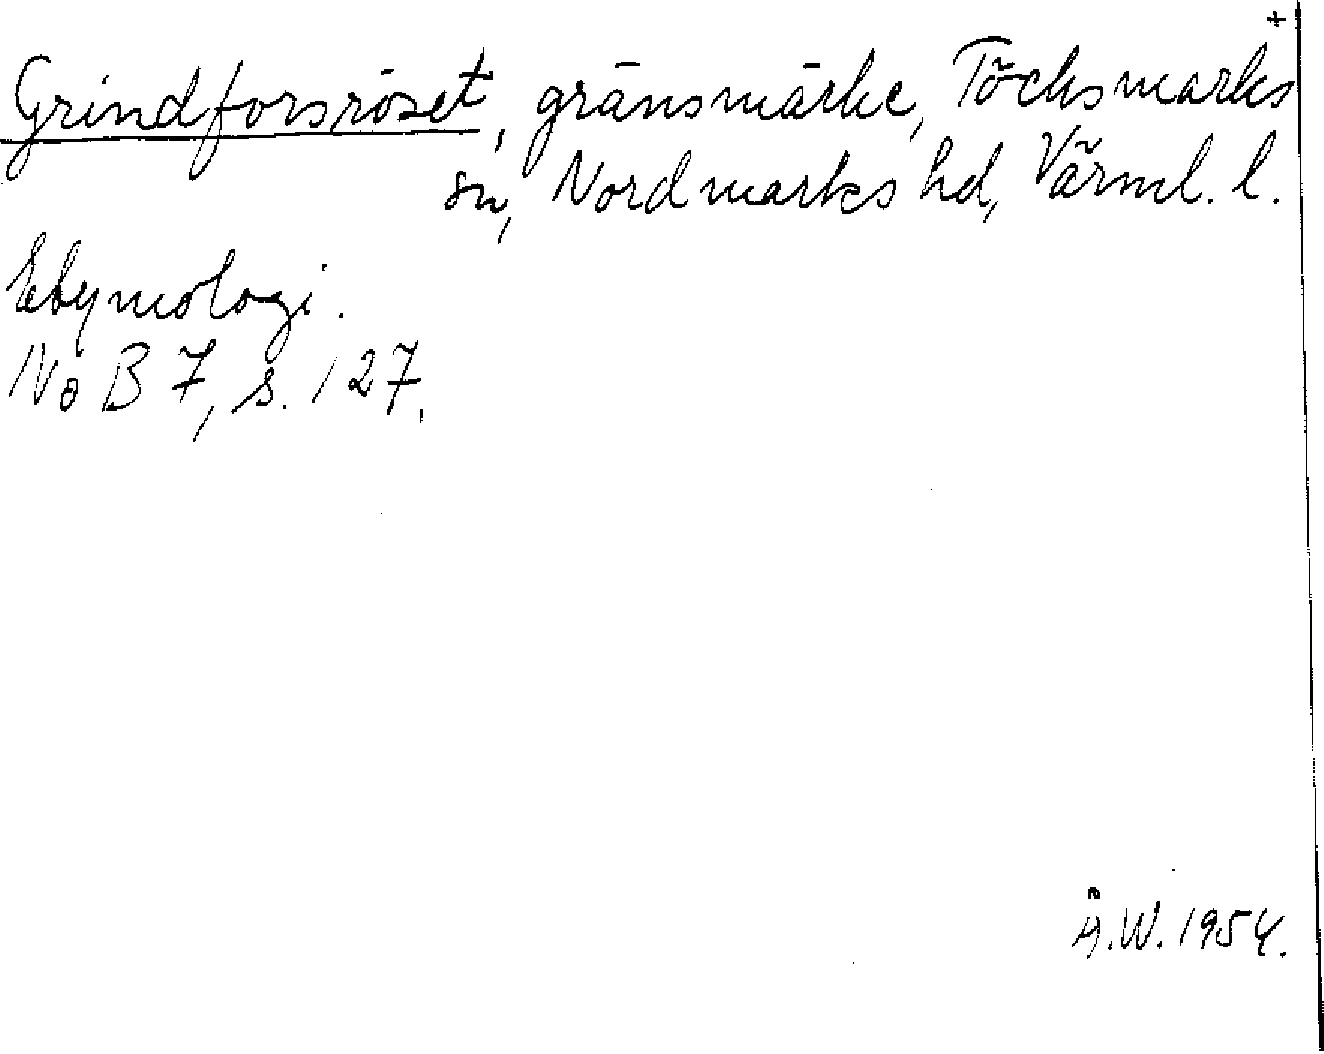 +
Grindforsröset, gränsmärke, Töcksmarks
sn, Nordmarks hd, Värml. l.
Etymologi.
NoB 7, s. 127.
Å.W. 1954.